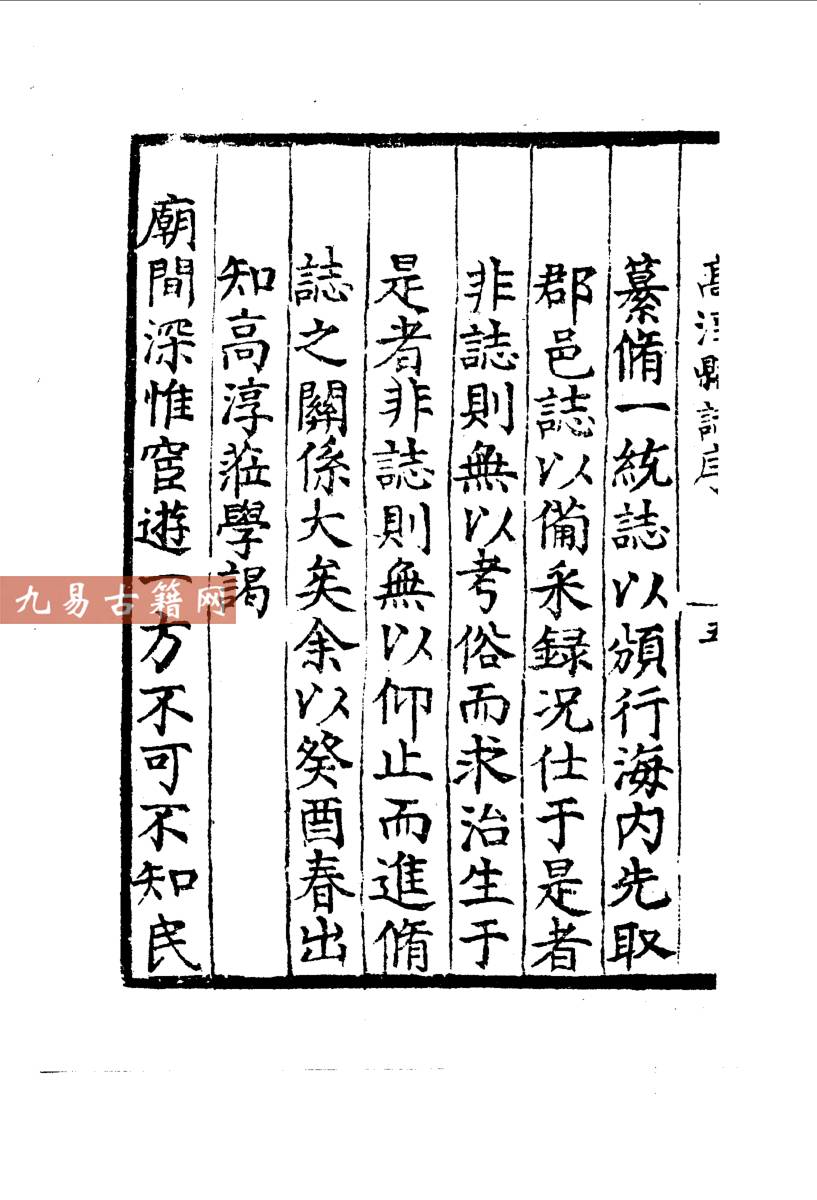 高淳縣誌序
五
纂脩一統誌以頒行海内先取
郡邑誌以備采録况仕于是者
非誌則無以考俗而求治生于
是者非誌則無以仰止而進脩
誌之關係大矣余以癸酉春出
知高淳蒞學謁
廟間深惟宦遊一方不可不知民
九易古籍网